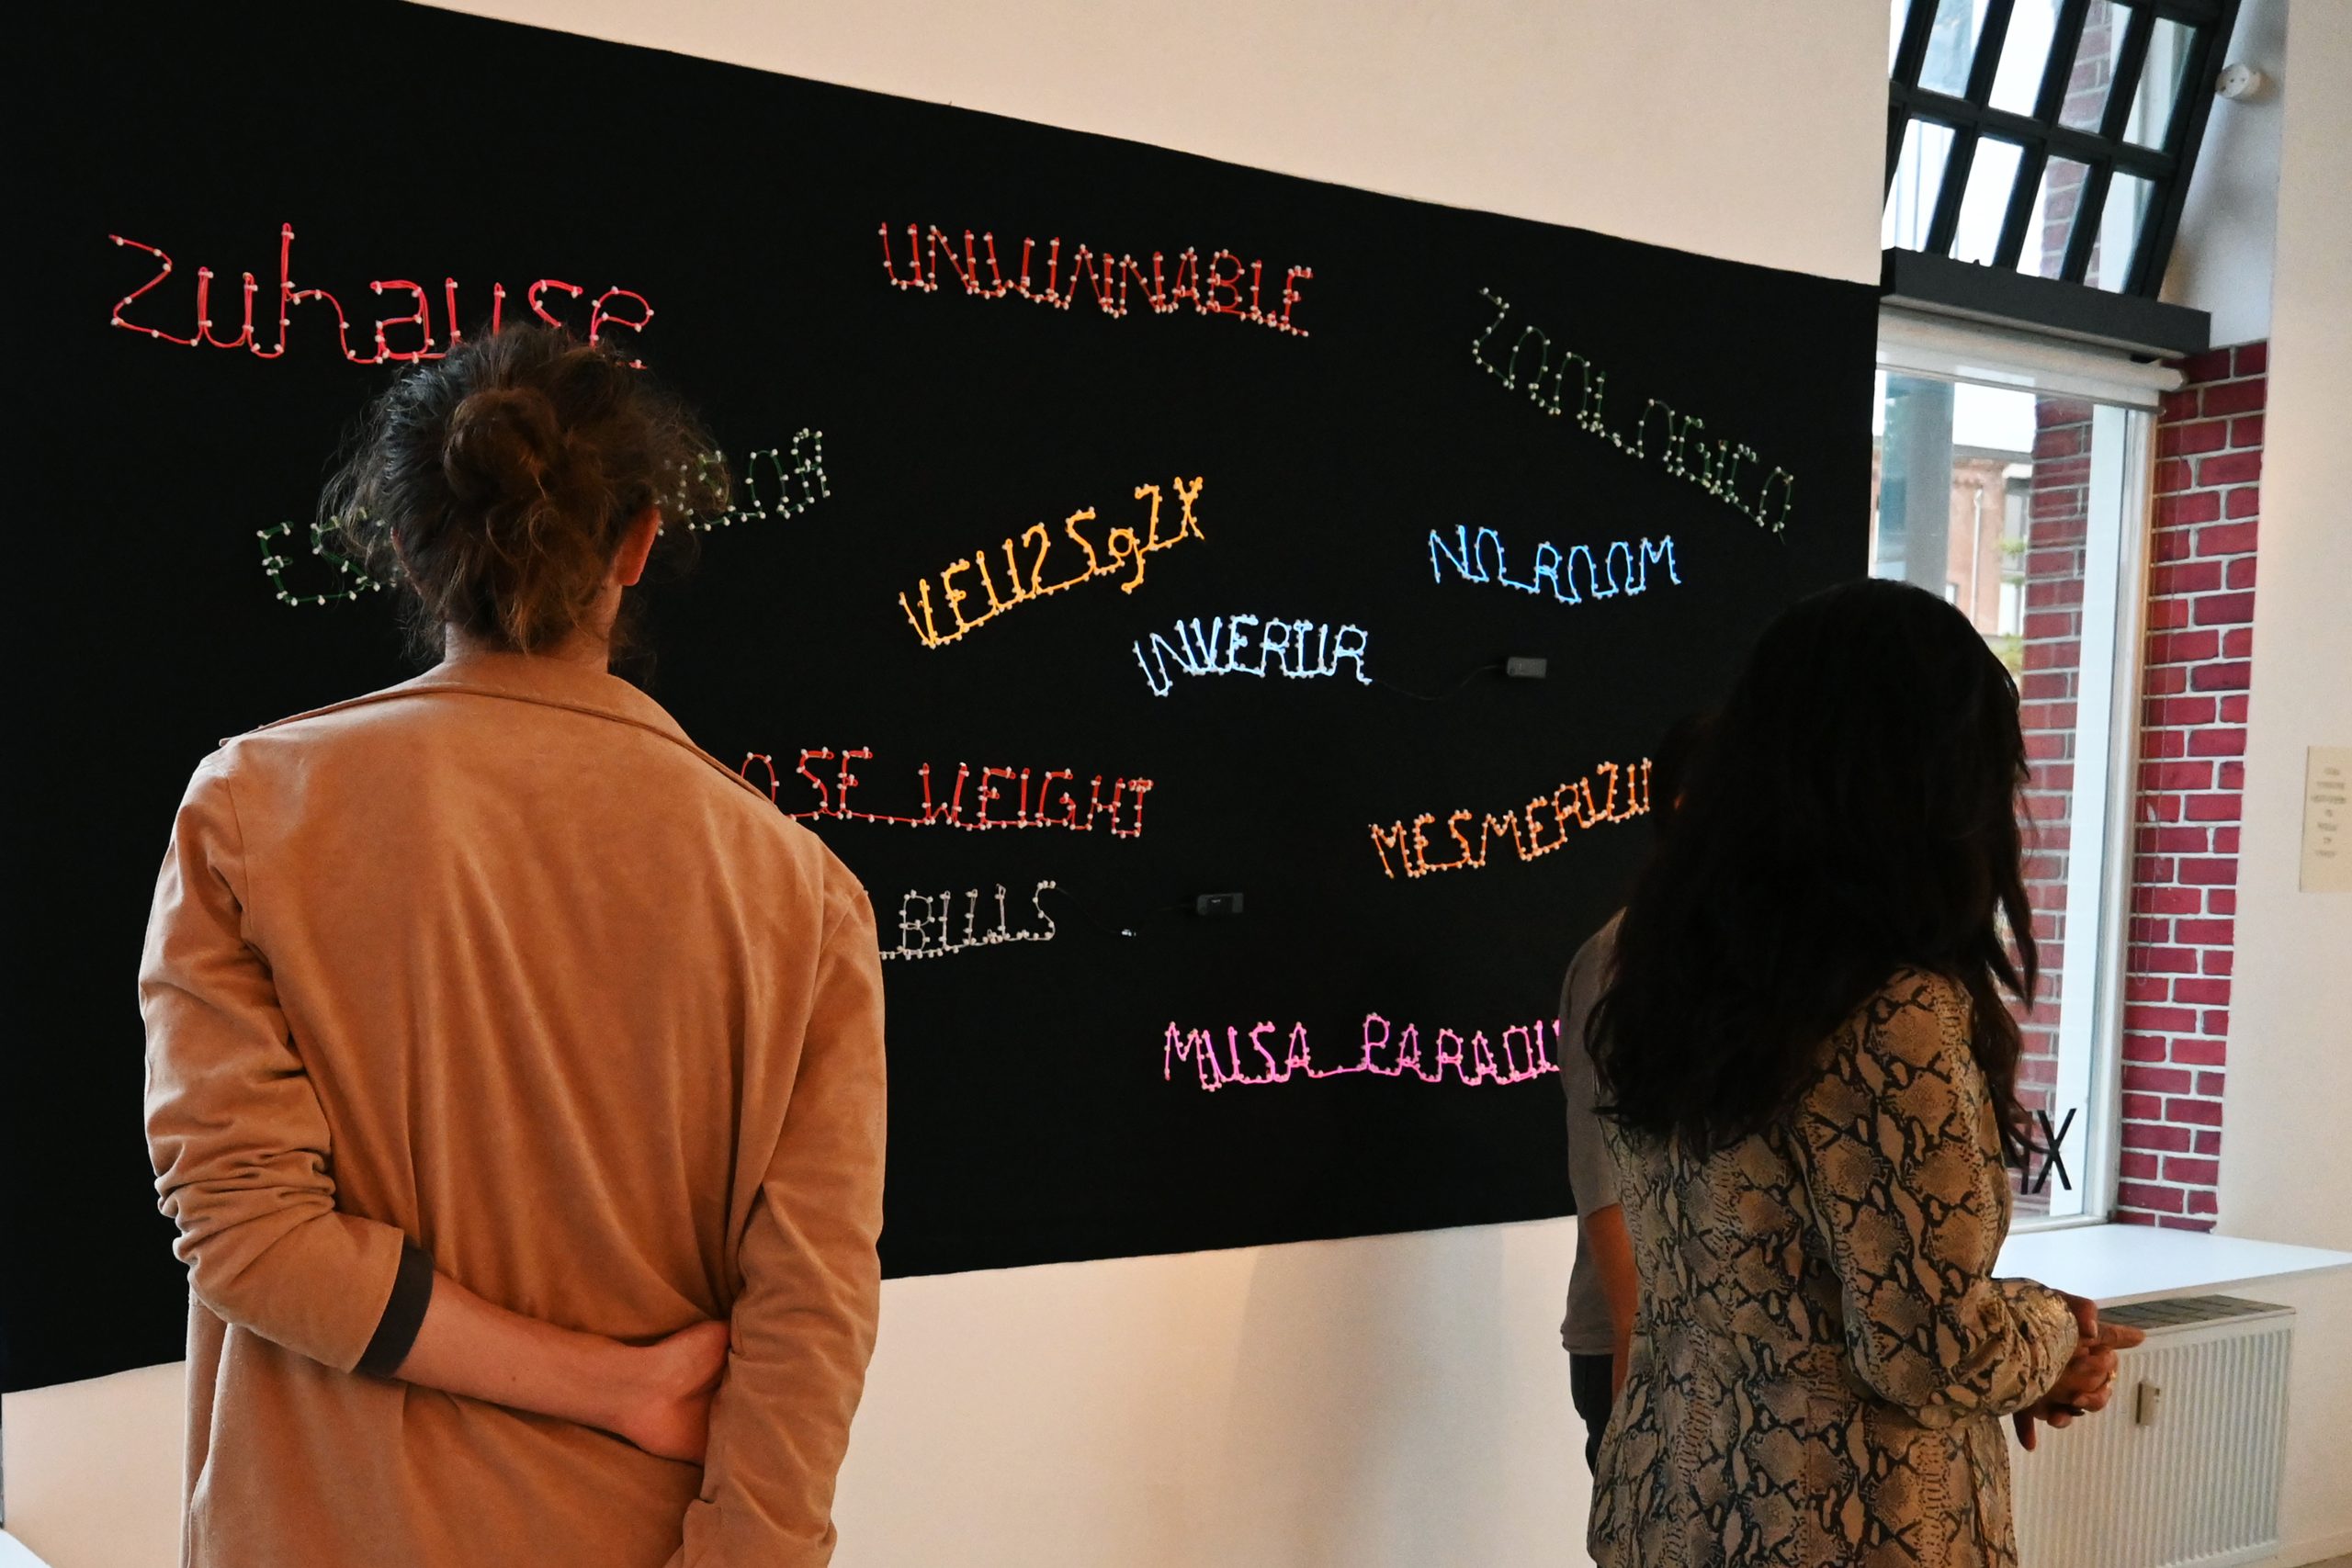 zuhause
UNWINNABLE
ZOOLOGICO
NO_ROOM
INVERTIR
OSE_WEIGHT
MESMERIZI
_BILLS
MUSA_PARADI